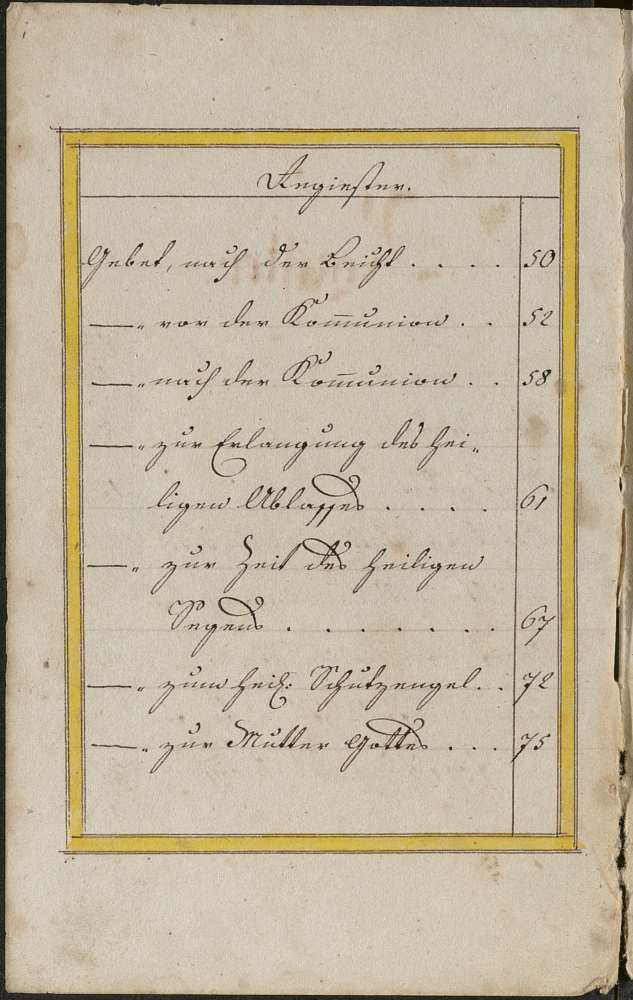 Regiester.
Gebet, nach der Beicht . . . . 50
—„ vor der Kom̅union . . 52
—„ nach der Kom̅union . . 58
—„ zur Erlangung des hei„
ligen Ablasses . . . . . 61
—„ zur Zeit des heiligen
Segens . . . . . . . 67
—„ zum heil: Schutzengel . . 72
—„ zur Mutter Gottes . . . 75